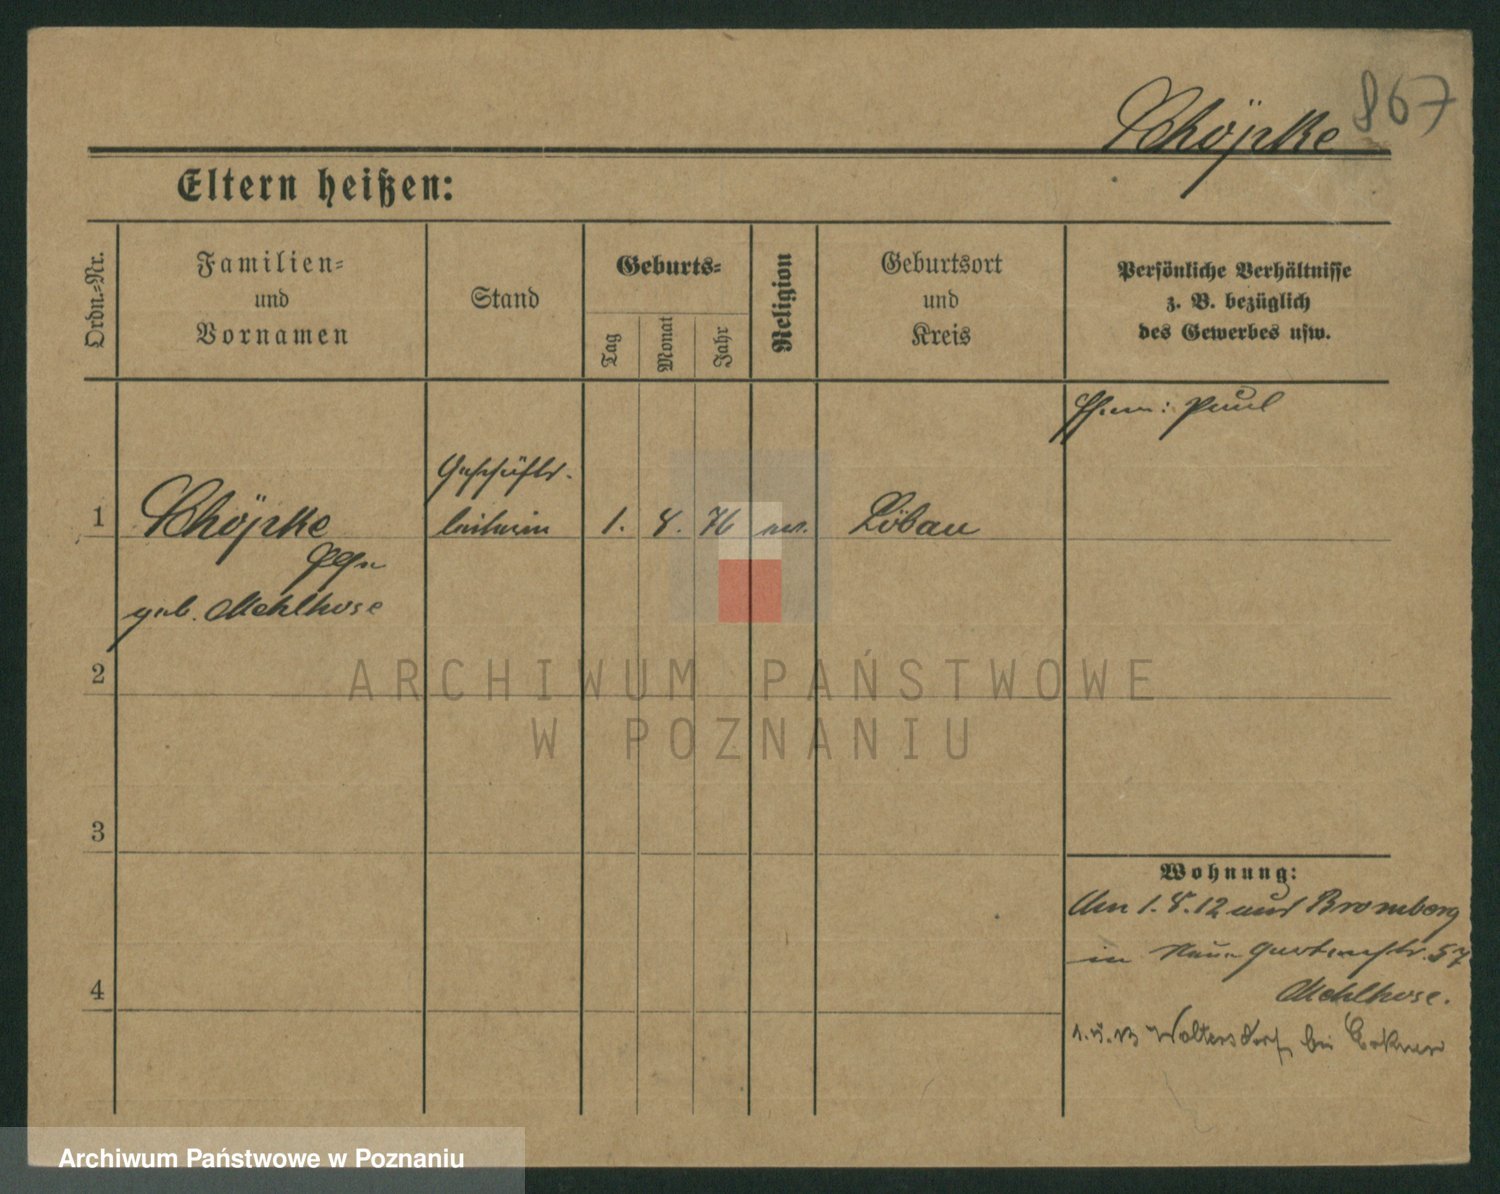 Schöpke
867
Eltern heißen:
Ordn.-Nr.
Familien-
und
Vornamen
Stand
Geburts-
Tag
Monat
Jahr
Religion
Geburtsort
und
Kreis
Persönliche Verhältnisse
z. B. bezüglich
des Gewerbes usw.
Ehem: Paul
Geschäfts-
1
Schöpke
leiterin
1. 8. 76
Löbau
geb. Mehlhose
2
ARCHIWUM PAŃSTWOWE
W POZNANIU
3
Wohnung:
Am 1. 8. 12 aus Bromberg
in Neue Gartenstr. 57
4
Mehlhose.
Woltersdorf bei Erkner
Archiwum Państwowe w Poznaniu